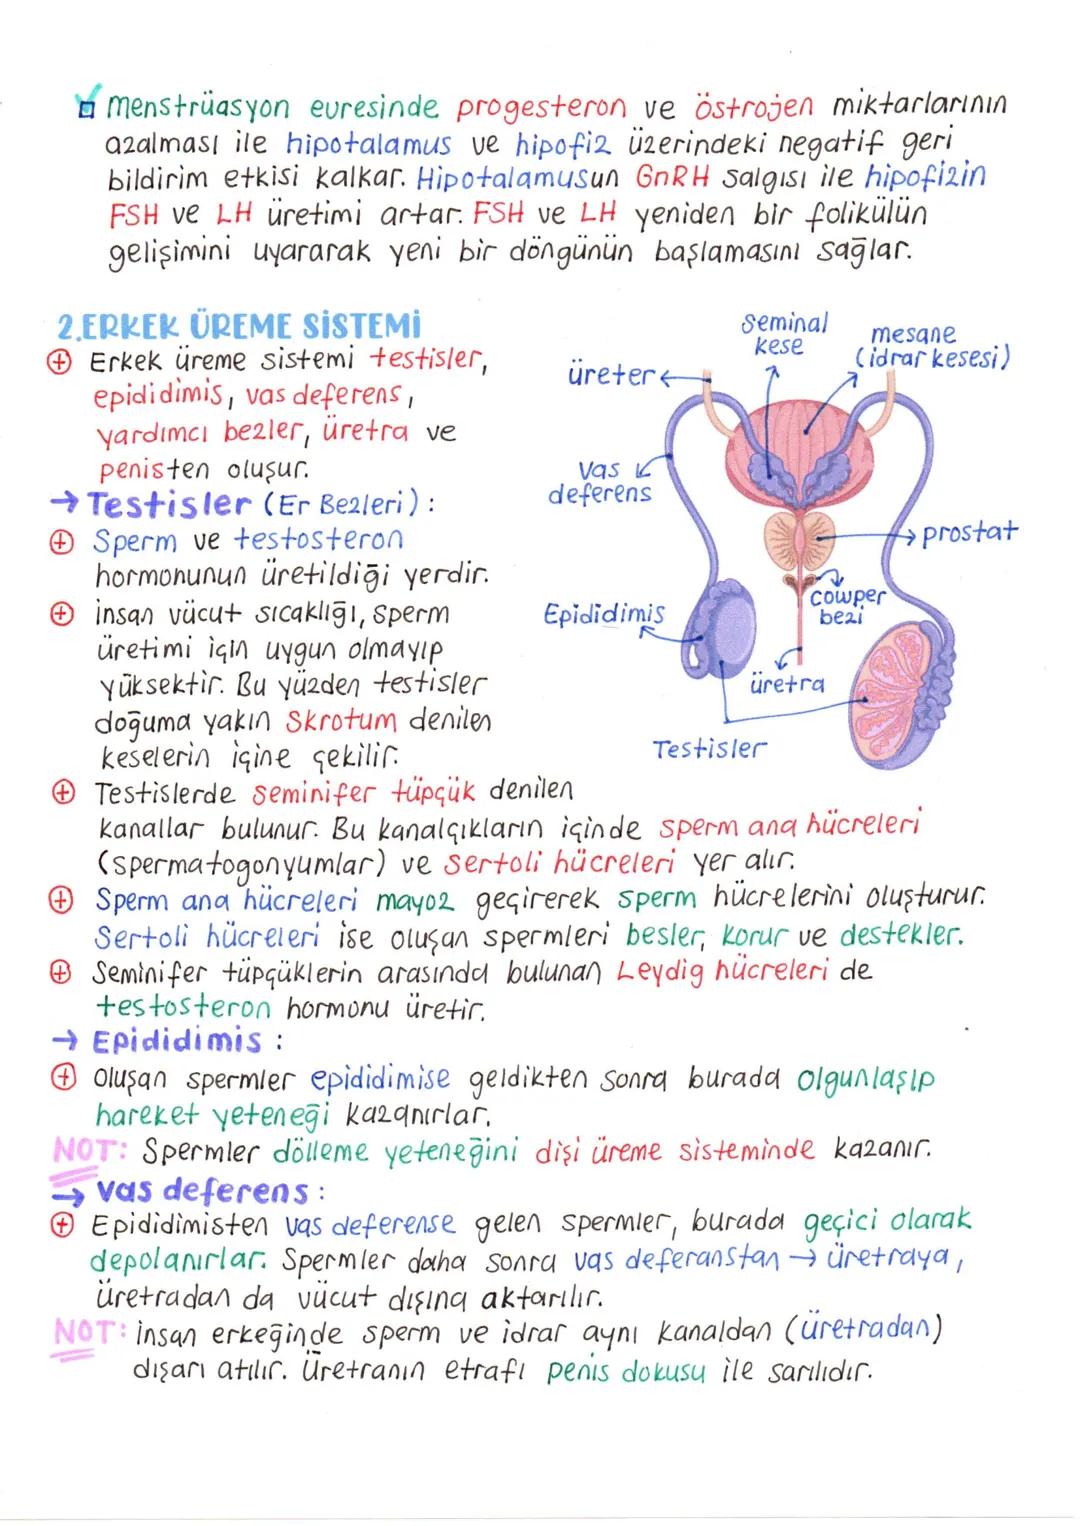 Menstrüasyon evresinde progesteron ve östrojen miktarlarının
azalması ile hipotalamus ve hipofiz üzerindeki negatif geri
bildirim etkisi kalkar. Hipotalamusun GnRH salgısı ile hipofizin
FSH ve LH üretimi artar. FSH ve LH yeniden bir folikülün
gelişimini uyararak yeni bir döngünün başlamasını sağlar.
2.ERKEK ÜREME SİSTEMİ
Erkek üreme sistemi testisler,
epididimis, vas deferens,
yardımcı bezler, üretra ve
penisten oluşur.
→ Testisler (Er Bezleri):
Sperm ve testosteron
hormonunun üretildiği yerdir.
İnsan vücut sıcaklığı, sperm
üretimi için uygun olmayıp
yüksektir. Bu yüzden testisler
doğuma yakın Skrotum denilen
keselerin içine çekilir.
üreter
Seminal
kese
mesane
(idrar kesesi)
Vas
deferens
prostat
Epididimis
cowper
bezi
üretra
Testisler
Testislerde seminifer tüpçük denilen
kanallar bulunur. Bu kanalçıkların içinde sperm ana hücreleri
(spermatogonyumlar) ve sertoli hücreleri yer alır.
Sperm ana hücreleri mayoz geçirerek sperm hücrelerini oluşturur.
Sertoli hücreleri ise oluşan spermleri besler, korur ve destekler.
Seminifer tüpçüklerin arasında bulunan Leydig hücreleri de
testosteron hormonu üretir.
→ Epididimis:
Oluşan spermler epididimise geldikten sonra burada olgunlaşıp
hareket yeteneği kazanırlar.
NOT: Spermler dölleme yeteneğini dişi üreme sisteminde kazanır.
→ Vas deferens:
Epididimisten vas deferense gelen spermler, burada geçici olarak
depolanırlar. Spermler daha sonra vas deferanstan → üretraya,
üretradan da vücut dışına aktarılır.
NOT: İnsan erkeğinde sperm ve idrar aynı kanaldan (üretradan)
dışarı atılır. Üretranın etrafı penis dokusu ile sarılıdır.